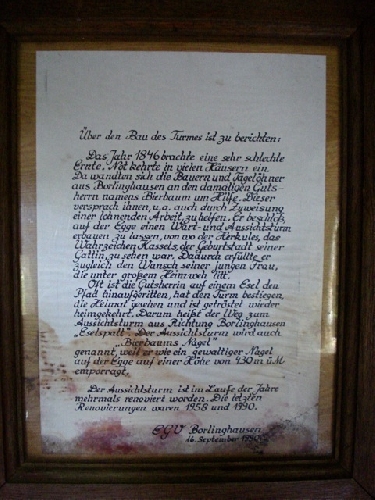 Über den Bau des Turmes ist zu berichten:
Das Jahr 1846 brachte eine sehr schlechte
Ernte, Not kehrte in vielen Häusern ein.
Da wandten sich die Bauern und Tagelöhner
aus Borlinghausen an den damaligen Guts-
herrn namens Bierbaum um Hilfe. Dieser
versprach ihnen, u. a. auch durch Zuweisung
einer lohnenden Arbeit, zu helfen. Er beschloß,
auf der Egge einen Wart- und Aussichtsturm
erbauen zu lassen, von wo der Herkules, das
Wahrzeichen Kassels, der Geburtsstadt seiner
Gattin, zu sehen war. Dadurch erfüllte er
zugleich den Wunsch seiner jungen Frau,
die unter großem Heimweh litt.
Oft ist die Gutsherrin auf einem Esel den
Pfad hinaufgeritten, hat den Turm bestiegen,
die Heimat gesehen und ist getröstet wieder
heimgekehrt. Darum heißt der Weg zum
Aussichtsturm aus Richtung Borlinghausen
"Eselspatt". Der Aussichtsturm wird auch
"Bierbaums Nagel"
genannt, weil er wie ein gewaltiger Nagel
auf der Egge auf einer Höhe von 430m ü.M.
emporragt.
Der Aussichtsturm ist im Laufe der Jahre
mehrmals renoviert worden. Die letzten
Renovierungen waren 1958 und 1990.
EGV Borlinghausen
September 1990